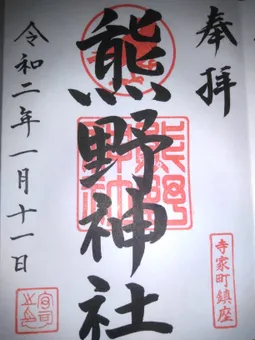 奉拝
寺家町鎮座
熊野神社
令和二年一月十一日